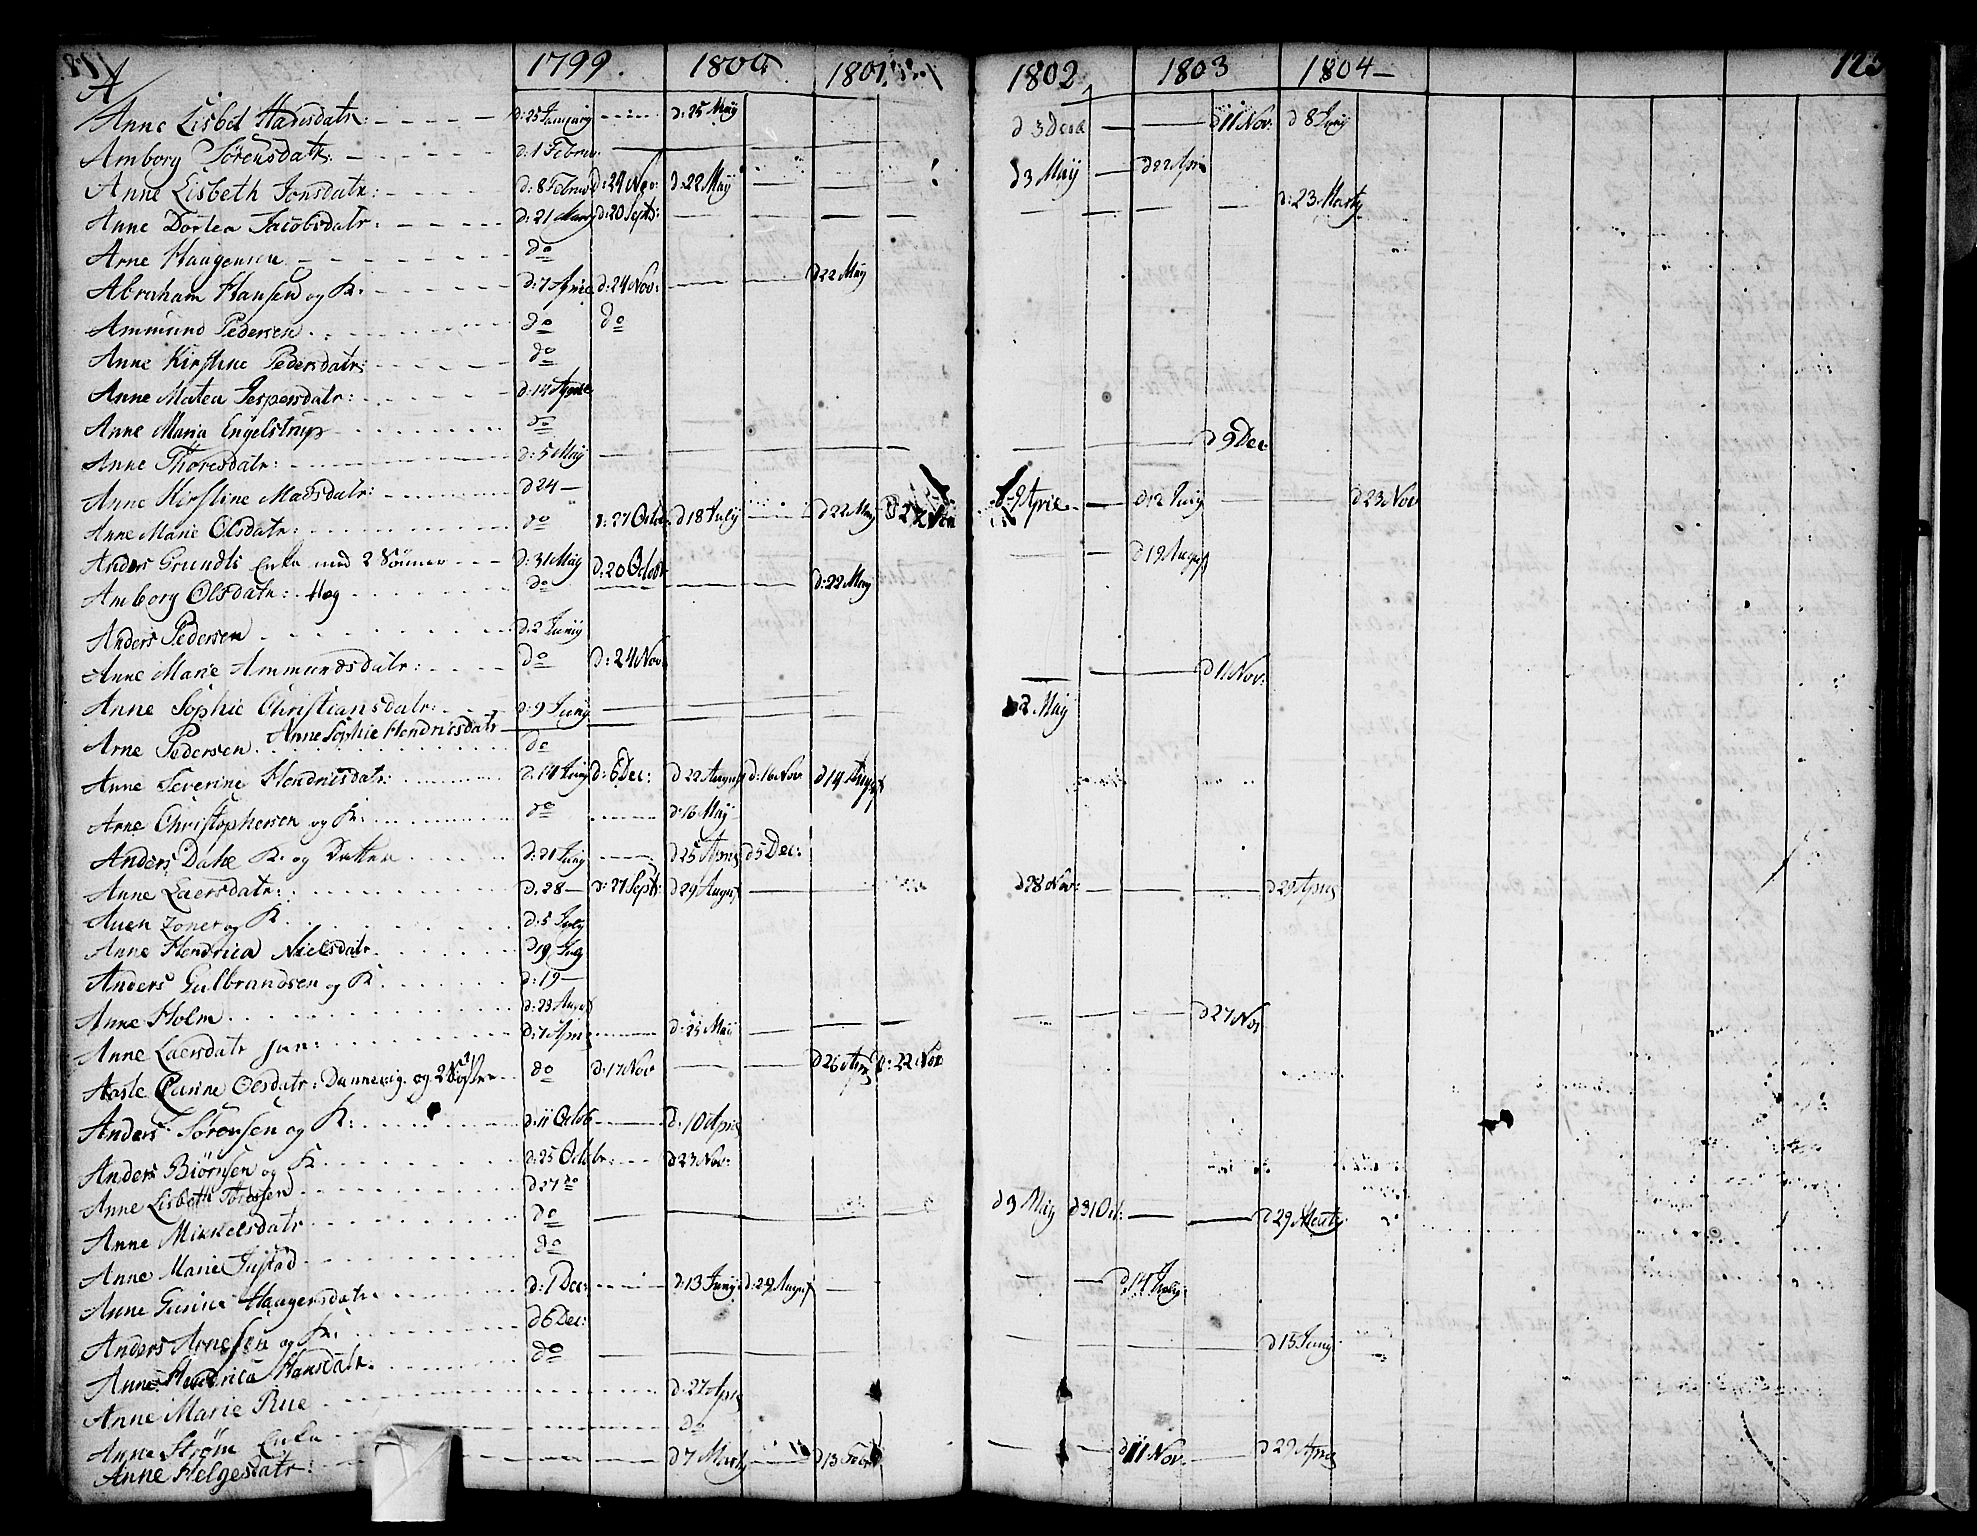 A 1799. 1800 1801 1802 1803 1804 123
Anne Lisbet Hansdatr: d: 25 January d: 25 Maij d 3 Dece d 11 Nov: d 8 Junij
Amborg Sörensdatr: d: 1 Febru:
Anne Lisbeth Jonsdatr: d: 8 Febru d: 24 Nov: d: 22 Maij d 3 Maij d 22 Apr
Anne Dortea Jacobsdatr: d: 21 Marty d: 20 Septb: d: 23 Marty
Arne Haagensen do
Abraham Hansen og K: d: 7 Aprie d: 24 Nov: d 22 Maij
Ammund Pedersen do do
Anne Kirstine Pedersdatr: do
Anne Matea Jespersdatr: d: 14 Aprie
Anne Maria Engelstrup do
Anne Thoresdatr: d: 5 Maij d 9 Dec:
Anne Kirstine Madsdatr: d 24
Anne Marie Olsdatr: do d: 27 Octob: d 18 July d 22 Maij d 22 Nov d 9 Aprie d 12 Junij d 23 Nov
Anders Grundts Enke med 2 Sönner d: 31 Maij d: 20 Octobr d 19 August
Amborg Olsdatr: Hög do d: 22 Maij
Anders Pedersen d: 2 Junij
Anne Marie Ammundsdatr: do d: 24 Nov: d 1 Nov:
Anne Sophie Christiansdatr: d: 9 Junij d 2 Maij
Anne Sophie Hendricsdatr
Arne Pedersen do
Anne Severine Hendricsdatr: d: 14 Junij d: 6 Dec: d 22 August d: 16 Nov d 14 August
Arne Christophersen og K: do d: 16 Maij
Anders Dahl K: og Datter d: 21 Junij d 25 April d 5 Dec:
Anne Laersdatr: d. 28 d: 27 Septb: d 29 August d 28 Nov: d 29 April
Auen Zoner og K d: 5 July
Anne Hendrica Nielsdatr d 19 July
Anders Gulbrandsen og K d: 19
Anne Holm d: 23 August d 27 Nov
Anne Laersdatr jun: d: 7 April d: 25 Maij
Aasle Carine Olsdatr: Dannevig og 2 do d: 17 Nov d 26 April d: 22 Nov
Anders Sörensen og K: d: 11 Octob d: 10 April
Anders Biörnsen og K d: 25 Octobr: d 23 Nov:
Anne Lisbeth d 27 do
Anne Mikkelsdatr do d 3 Maij d 31 Oct: d 29 Marty
Anne Marie do
Anne Gurine Haagensdatr. d: 1 Dec: d: 13 Junij d: 29 August d 14 July
Anders Arnesen og K: d 6 Dec:
Anne Hendrica Hansdatr. do d 15 Junij
Anne Marie Rue d: 27 April
Anne Ström Enke do
Anne Helgesdatr: d 7 Marty d 13 Febr d 11 Nov. d 29 April